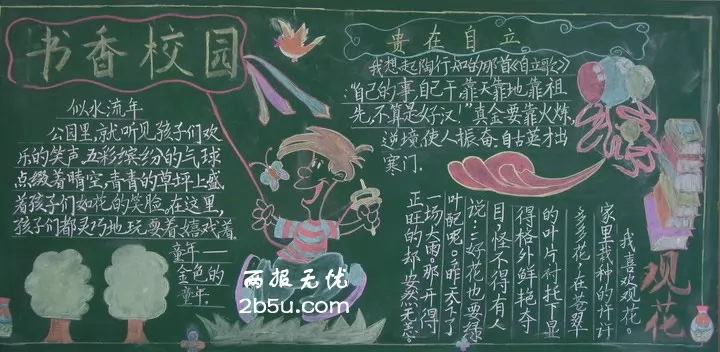 书香校园
似水流年
公园里,就听见孩子们欢
乐的笑声,五彩缤纷的气球
点缀着晴空,青青的草坪上盛
着孩子们如花的笑脸。在这里,
孩子们都灵巧地玩耍着,嬉戏着。
童年——
金色的
童年
贵在自立
我想起陶行知的那首《自立歌》
:"自己的事自己干,靠天靠地靠祖
先,不算是好汉!"真金要靠火炼,
逆境使人振奋,自古英才出
寒门.
观花
我喜欢观花。
家里栽种的许许
多多花,在苍翠
的叶片衬托下显
得格外鲜艳夺
目,怪不得有人
说:"好花也要绿
叶配呢。"昨天下了
一场大雨。那开得
正旺的却安然无恙。
两报无忧
2b5u.com